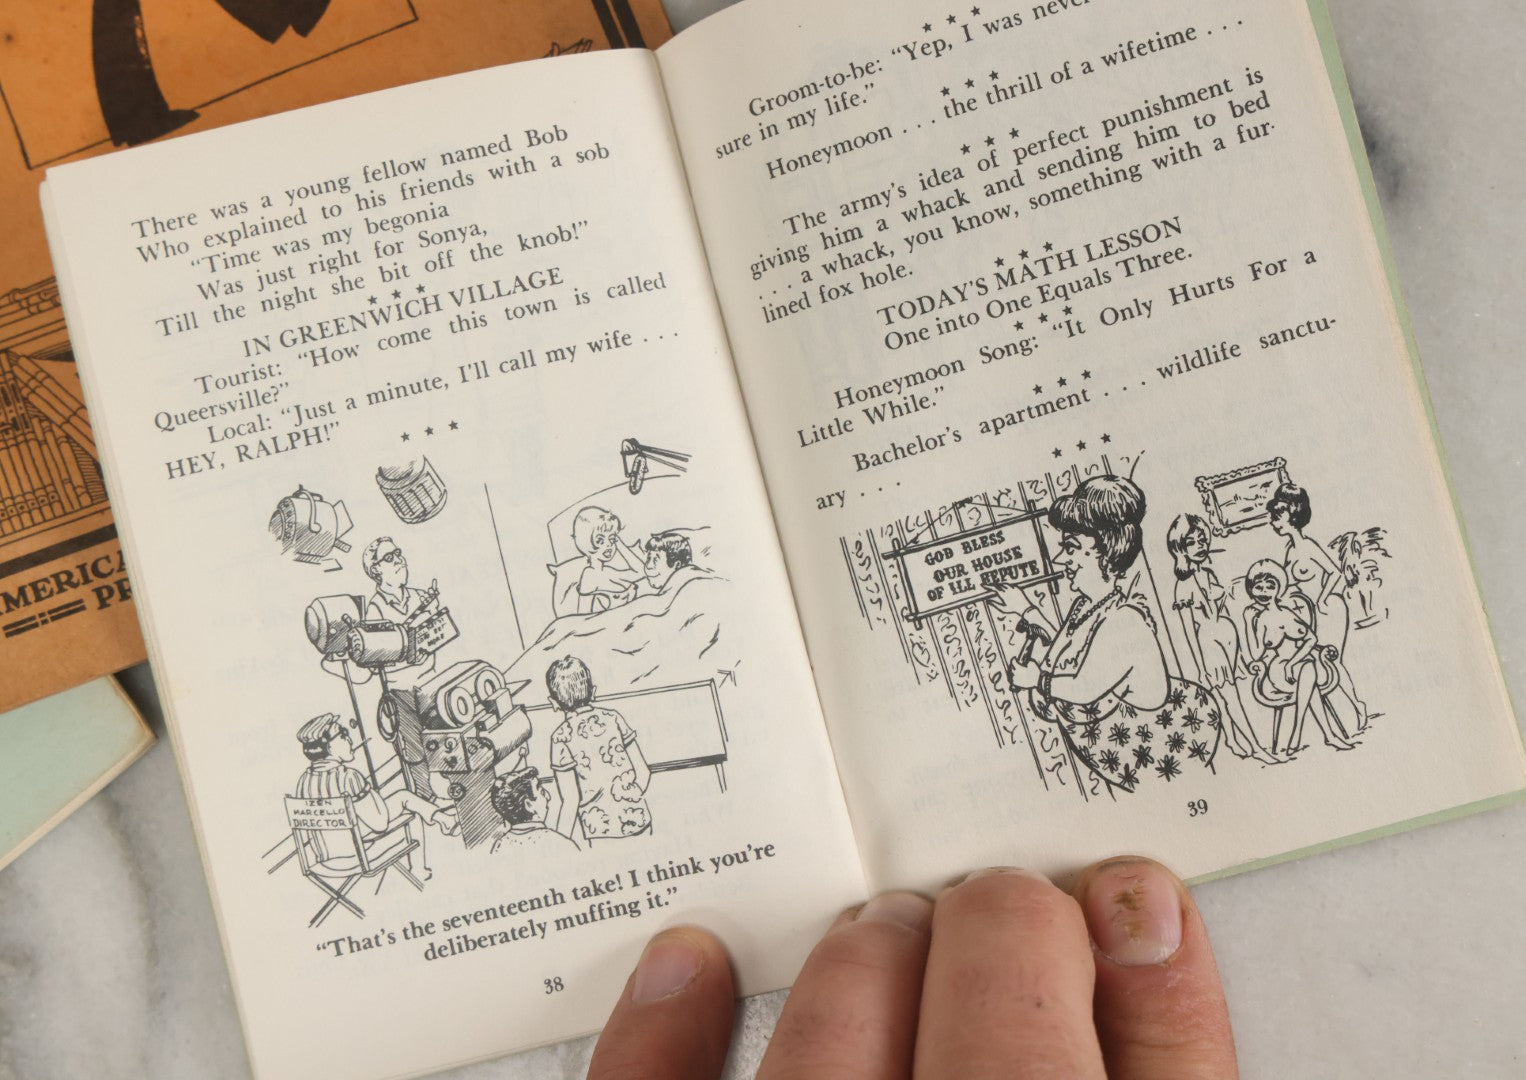 There was a young fellow named Bob
Who explained to his friends with a sob
"Time was my begonia
Was just right for Sonya,
Till the night she bit off the knob!"
* * *
IN GREENWICH VILLAGE
Tourist: "How come this town is called
Queersville?"
Local: "Just a minute, I'll call my wife . . .
HEY, RALPH!"
* * *
IZEN
MARCELLO
DIRECTOR
"That's the seventeenth take! I think you're
deliberately muffing it."
38
* * *
Groom-to-be: "Yep, I was never
sure in my life."
* * *
Honeymoon . . . the thrill of a wifetime . . .
* * *
The army's idea of perfect punishment is
giving him a whack and sending him to bed
. . . a whack, you know, something with a fur-
lined fox hole.
* * *
TODAY'S MATH LESSON
One into One Equals Three.
* * *
Honeymoon Song: "It Only Hurts For a
Little While."
* * *
Bachelor's apartment . . . wildlife sanctu-
ary . . .
* * *
GOD BLESS
OUR HOUSE
OF ILL REPUTE
39